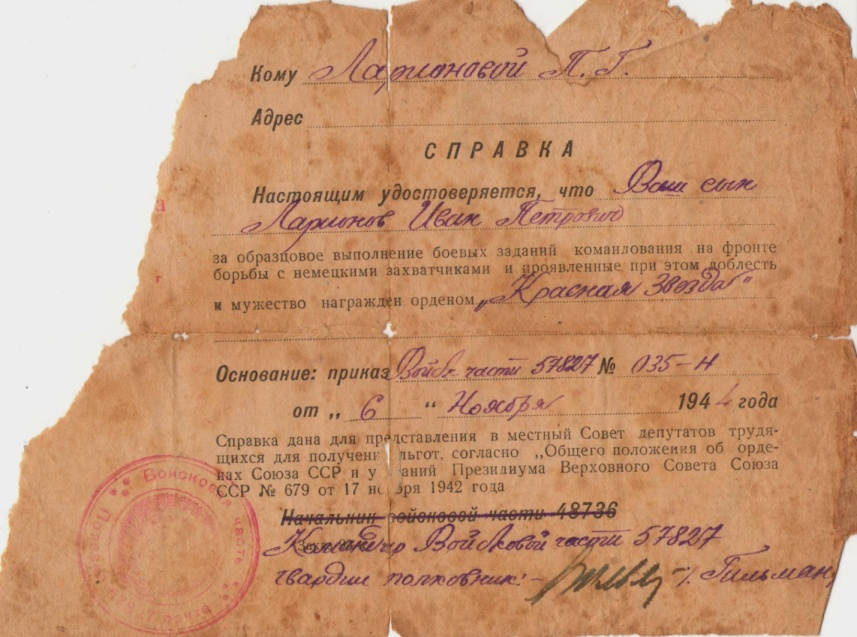 Кому Ларионовой П. Г.
Адрес
СПРАВКА
Настоящим удостоверяется, что Ваш сын
Ларионов Иван Петрович
за образцовое выполнение боевых заданий командования на фронте
борьбы с немецкими захватчиками и проявленные при этом доблесть
и мужество награжден орденом „Красная Звезда"
Основание: приказ Войск части 57827 № 035-Н
от „ 6 " Ноября 1944 года
Справка дана для представления в местный Совет депутатов трудя-
щихся для получени льгот, согласно „Общего положения об орде-
нах Союза ССР и у аний Президиума Верховного Совета Союза
ССР № 679 от 17 но бря 1942 года
Начальник войсковой части 48736
Командир Войсковой части 57827
гвардии полковник: - /. Гильман/
Войсковая часть